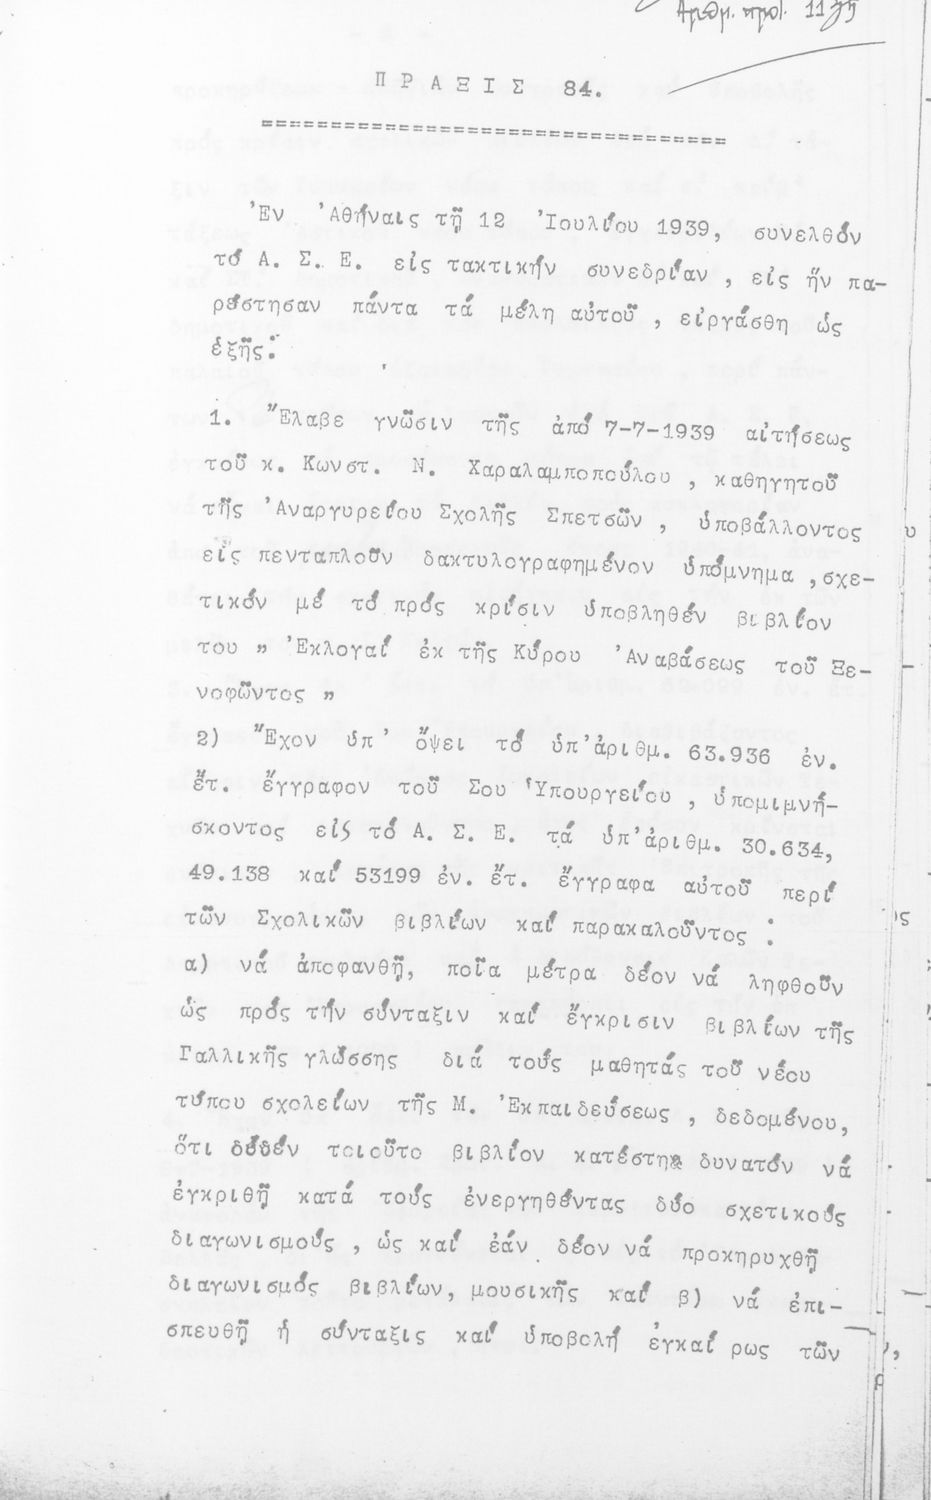 Αριθμ. πρωτ. 1175
ΠΡΑΞΙΣ 84.
==================================
Ἐν Ἀθήναις τῇ 12 Ἰουλίου 1939, συνελθόν
τό Α. Σ. Ε. εἰς τακτικήν συνεδρίαν, εἰς ἥν πα-
ρέστησαν πάντα τά μέλη αὐτοῦ, εἰργάσθη ὡς
ἑξῆς:
1. Ἔλαβε γνῶσιν τῆς ἀπό 7-7-1939 αἰτήσεως
τοῦ κ. Κωνστ. Ν. Χαραλαμποπούλου, καθηγητοῦ
τῆς Ἀναργυρείου Σχολῆς Σπετσῶν, ὑποβάλλοντος
εἰς πενταπλοῦν δακτυλογραφημένον ὑπόμνημα, σχε-
τικόν μέ τό πρός κρίσιν ὑποβληθέν βιβλίον
του „ Ἐκλογαί ἐκ τῆς Κύρου Ἀναβάσεως τοῦ Ξε-
νοφῶντος „
2) Ἔχον ὑπ' ὄψει τό ὑπ' ἀριθμ. 63.936 ἐν.
ἔτ. ἔγγραφον τοῦ Σου Ὑπουργείου, ὑπομιμνή-
σκοντος εἰς τό Α. Σ. Ε. τά ὑπ' ἀριθμ. 30.634,
49.138 καί 53199 ἐν. ἔτ. ἔγγραφα αὐτοῦ περί
τῶν Σχολικῶν βιβλίων καί παρακαλοῦντος:
α) νά ἀποφανθῇ, ποῖα μέτρα δέον νά ληφθοῦν
ὡς πρός τήν σύνταξιν καί ἔγκρισιν βιβλίων τῆς
Γαλλικῆς γλώσσης διά τούς μαθητάς τοῦ νέου
τύπου σχολείων τῆς Μ. Ἐκπαιδεύσεως, δεδομένου,
ὅτι οὐδέν τοιοῦτο βιβλίον κατέστη δυνατόν νά
ἐγκριθῇ κατά τούς ἐνεργηθέντας δύο σχετικούς
διαγωνισμούς, ὡς καί ἐάν δέον νά προκηρυχθῇ
διαγωνισμός βιβλίων, μουσικῆς καί β) νά ἐπι-
σπευθῇ ἡ σύνταξις καί ὑποβολή ἐγκαίρως τῶν